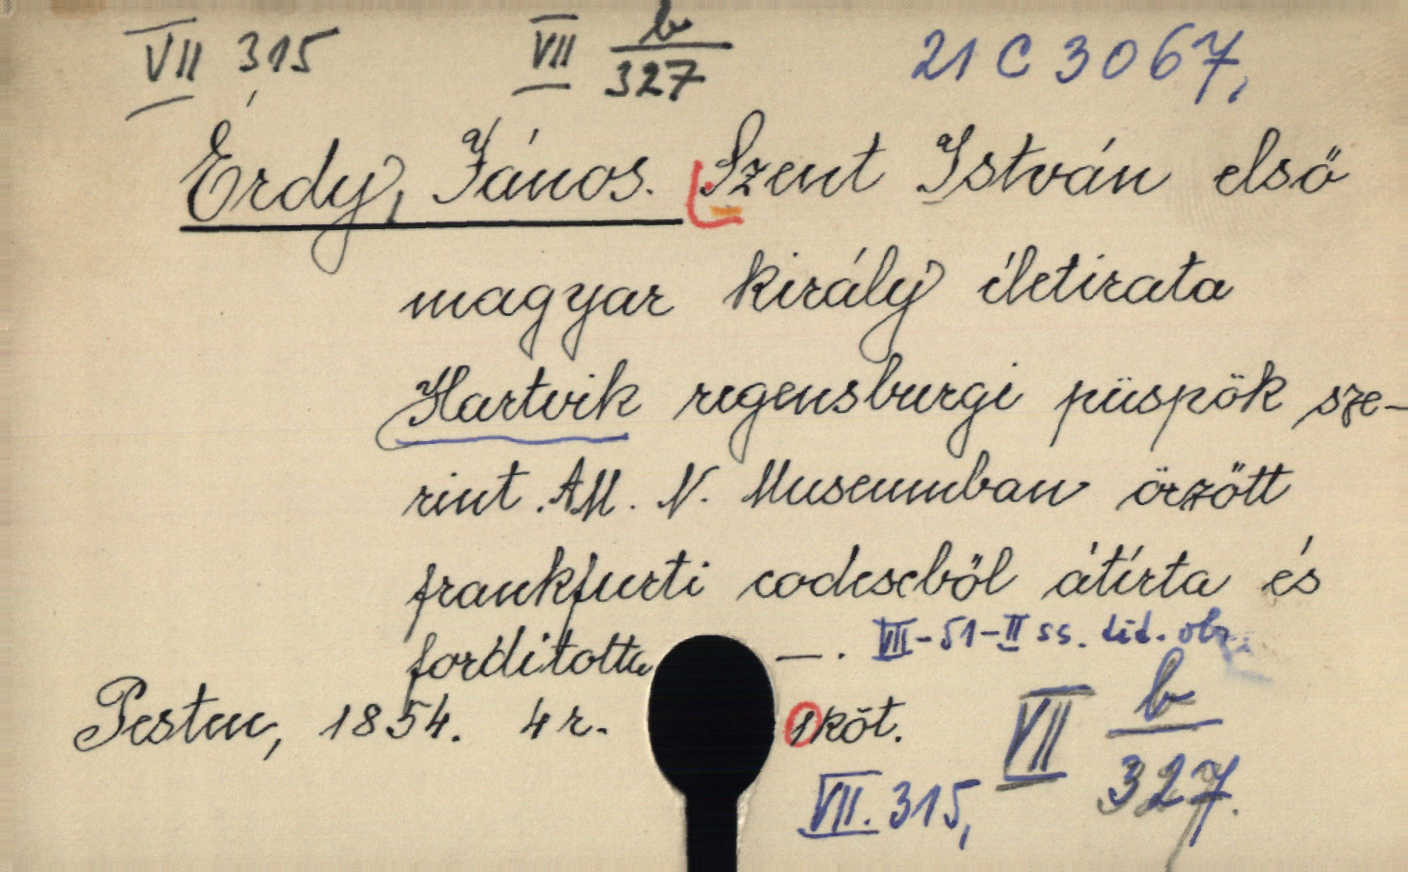 VII 315 VII b/327 21 C 3067,
Érdy, János. Szent István első
magyar király életirata
Hartvik regensburgi püspök sze-
rint. A M. N. Museumban őrzött
frankfurti codexből átírta és
fordította —. VII-51-II ss.
Pesten, 1854. 4 r. 1 köt. VII b/327.
VII. 315,